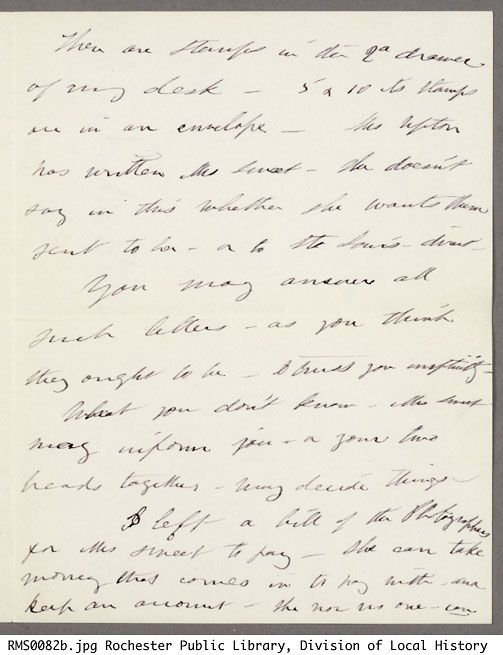 There are stamps in the 2d drawer
of my desk – 5 & 10 cts stamps
are in an envelope – Mrs Upton
has written Mrs Sweet – she doesn't
say in this whether she wants them
sent to her – or to St Louis – direct –
You may answer all
such letters – as you think
they ought to be – I trust you implicitly –
What you don't know – Mrs Sweet
may inform you – or your two
heads together – may decide things –
I left a bill of the Photographers
for Mrs Sweet to pay – She can take
money that comes in to pay with – and
keep an account – She nor no one – can
RMS0082b.jpg Rochester Public Library, Division of Local History